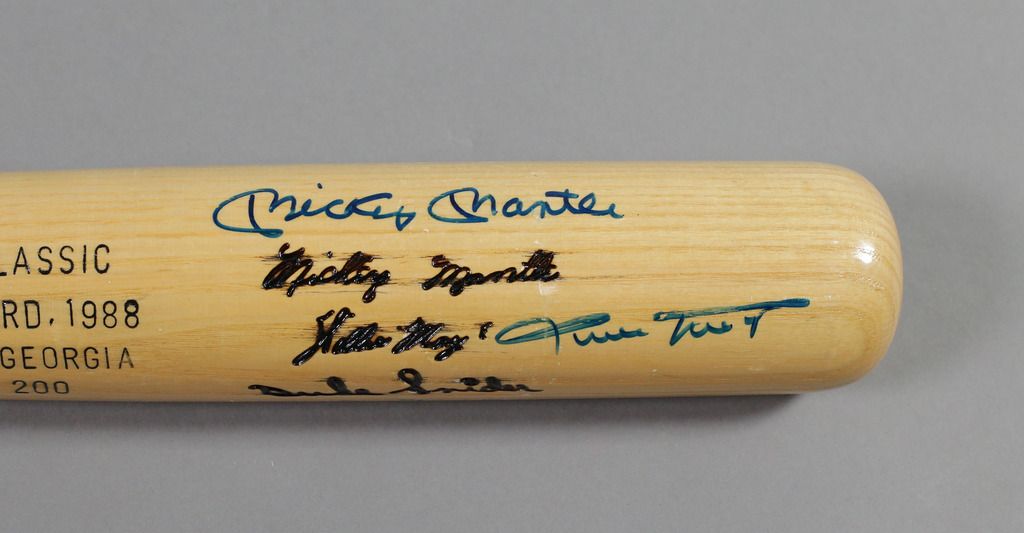 LASSIC
RD, 1988
GEORGIA
200
Mickey Mantle
Mickey Mantle
Willie Mays Willie Mays
Duke Snider